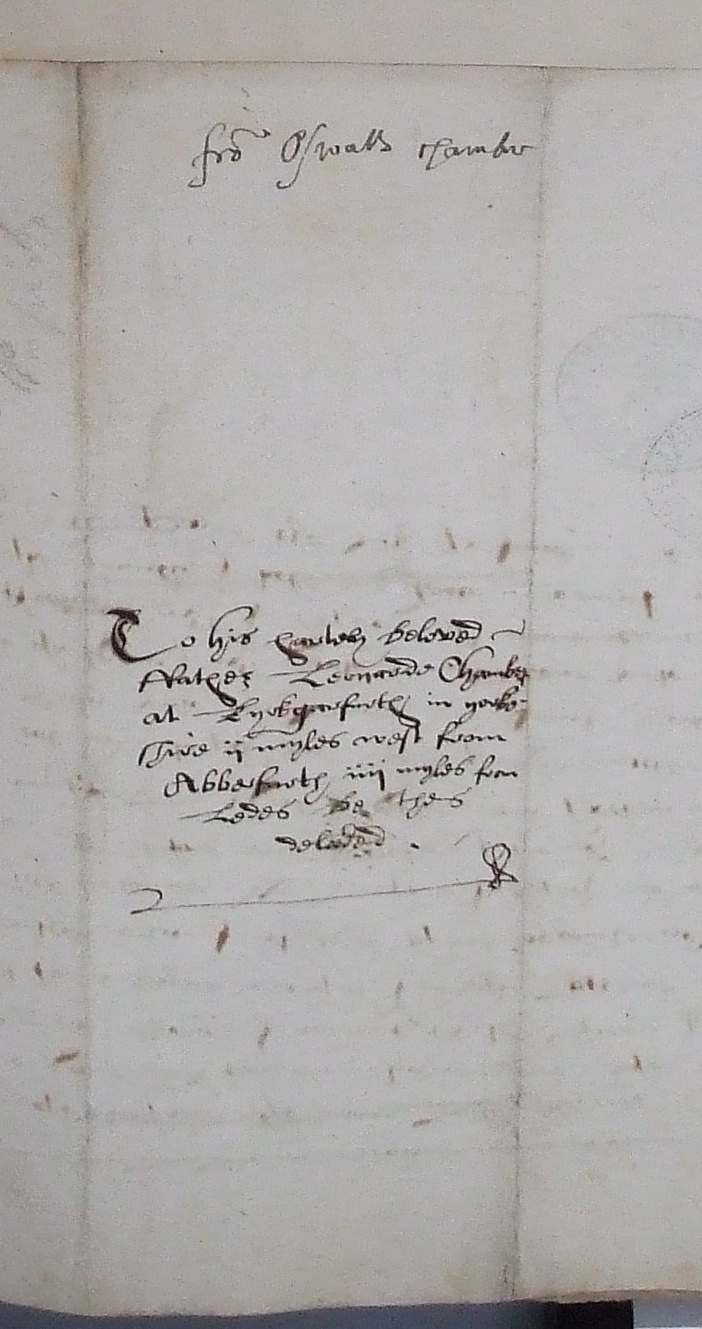 frõ Oswald chamber
To his hartely beloved
ffather Leonarde Chamber
at Kyrkgarfurth in york-
shire ij myles west from
Abberfurth iiij myles from
Ledes be thes
delivered .